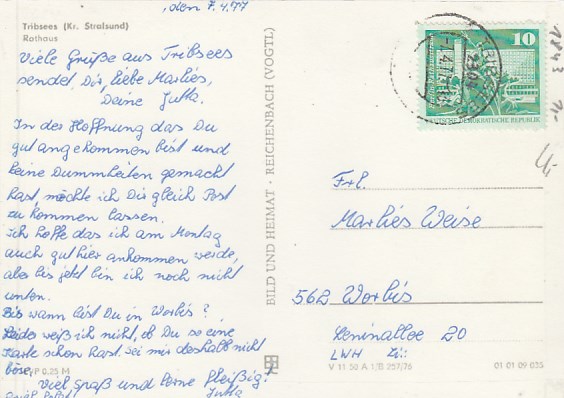 , den 7.4.77
Tribsees (Kr. Stralsund)
Rathaus
Viele Grüße aus Tribsees
sendet Dir, liebe Marlies,
Deine Jutta.
In der Hoffnung das Du
gut angekommen bist und
keine Dummheiten gemacht
hast, möchte ich Dir gleich Post
zu kommen lassen.
Ich hoffe das ich am Montag
auch gut hier ankommen werde,
aber bis jetzt bin ich noch nicht
unten.
Bis wann bist Du in Worbis?
Leider weiß ich nicht, ob Du so eine
Karte schon hast. sei mir deshalb nicht
böse.
EVP 0,25 M
Viel Spaß und lerne fleißig!
Jutta
BILD UND HEIMAT · REICHENBACH (VOGTL)
10
DEUTSCHE DEMOKRATISCHE REPUBLIK
TRIBSEES
2304
1843
Frl.
Marlies Weise
562 Worbis
Leninallee 20
LWH Zi:
V 11 50 A 1/B 257/76
01 01 09 035